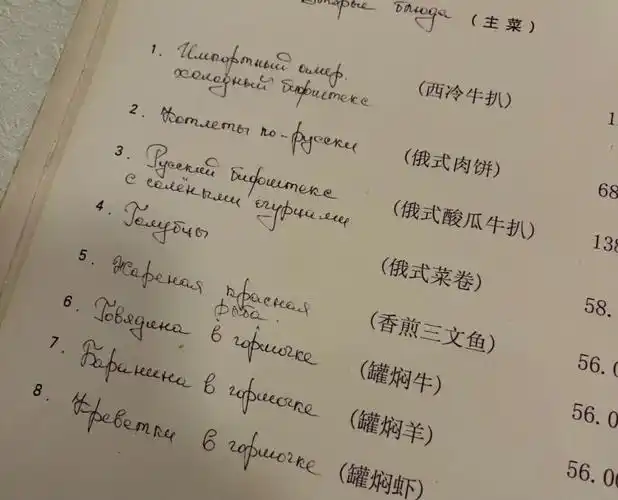 Вторые блюда (主菜)
1. Импортный амер.
холодный бифштекс (西冷牛扒) 1
2. Котлеты по-русски (俄式肉饼) 68
3. Русский бифштекс
с солёными огурцами (俄式酸瓜牛扒) 138
4. Голубцы (俄式菜卷) 58.
5. Жареная красная
рыба. (香煎三文鱼) 56.0
6. Говядина в горшочке (罐焖牛) 56.0
7. Баранина в горшочке (罐焖羊) 56.00
8. Креветки в горшочке (罐焖虾)